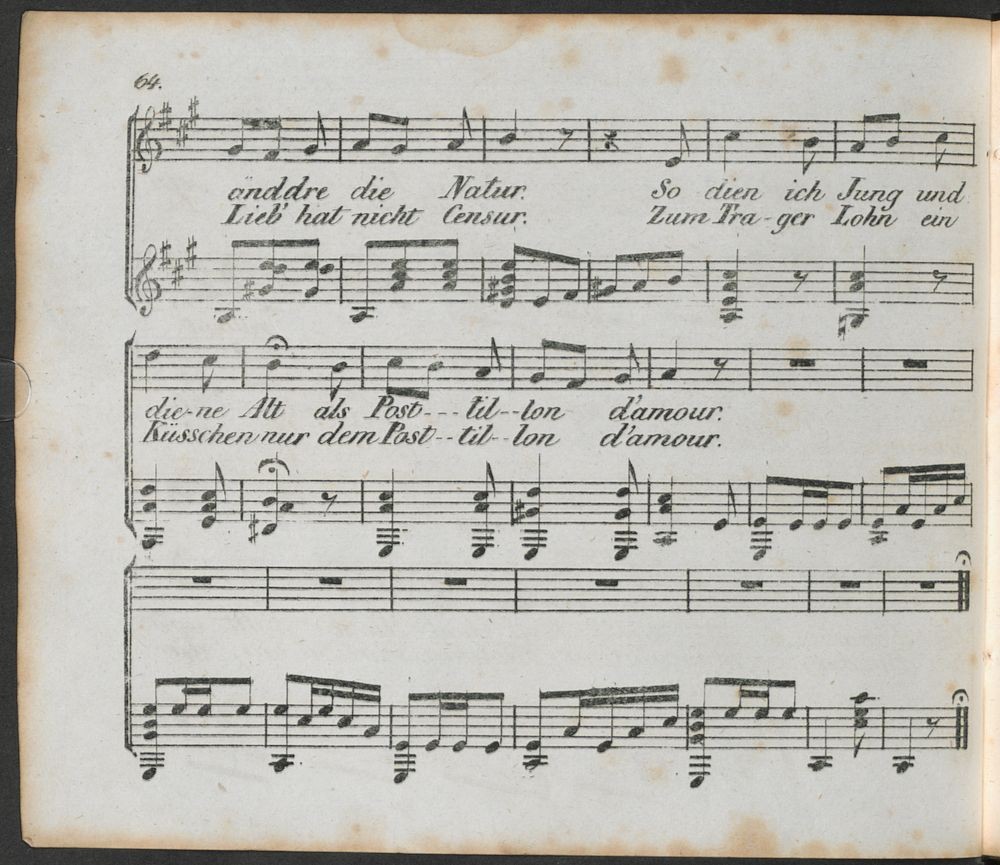 64.
änddre die Natur. So dien ich Jung und
Lieb' hat nicht Censur. Zum Tra-ger Lohn ein
die-ne Alt als Post---til--lon d'amour.
Küsschen nur dem Post--til--lon d'amour.